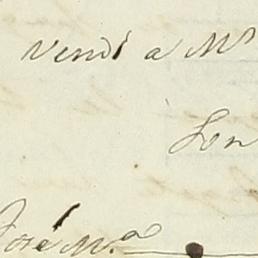 Vendí a Mr
Son
José M.a